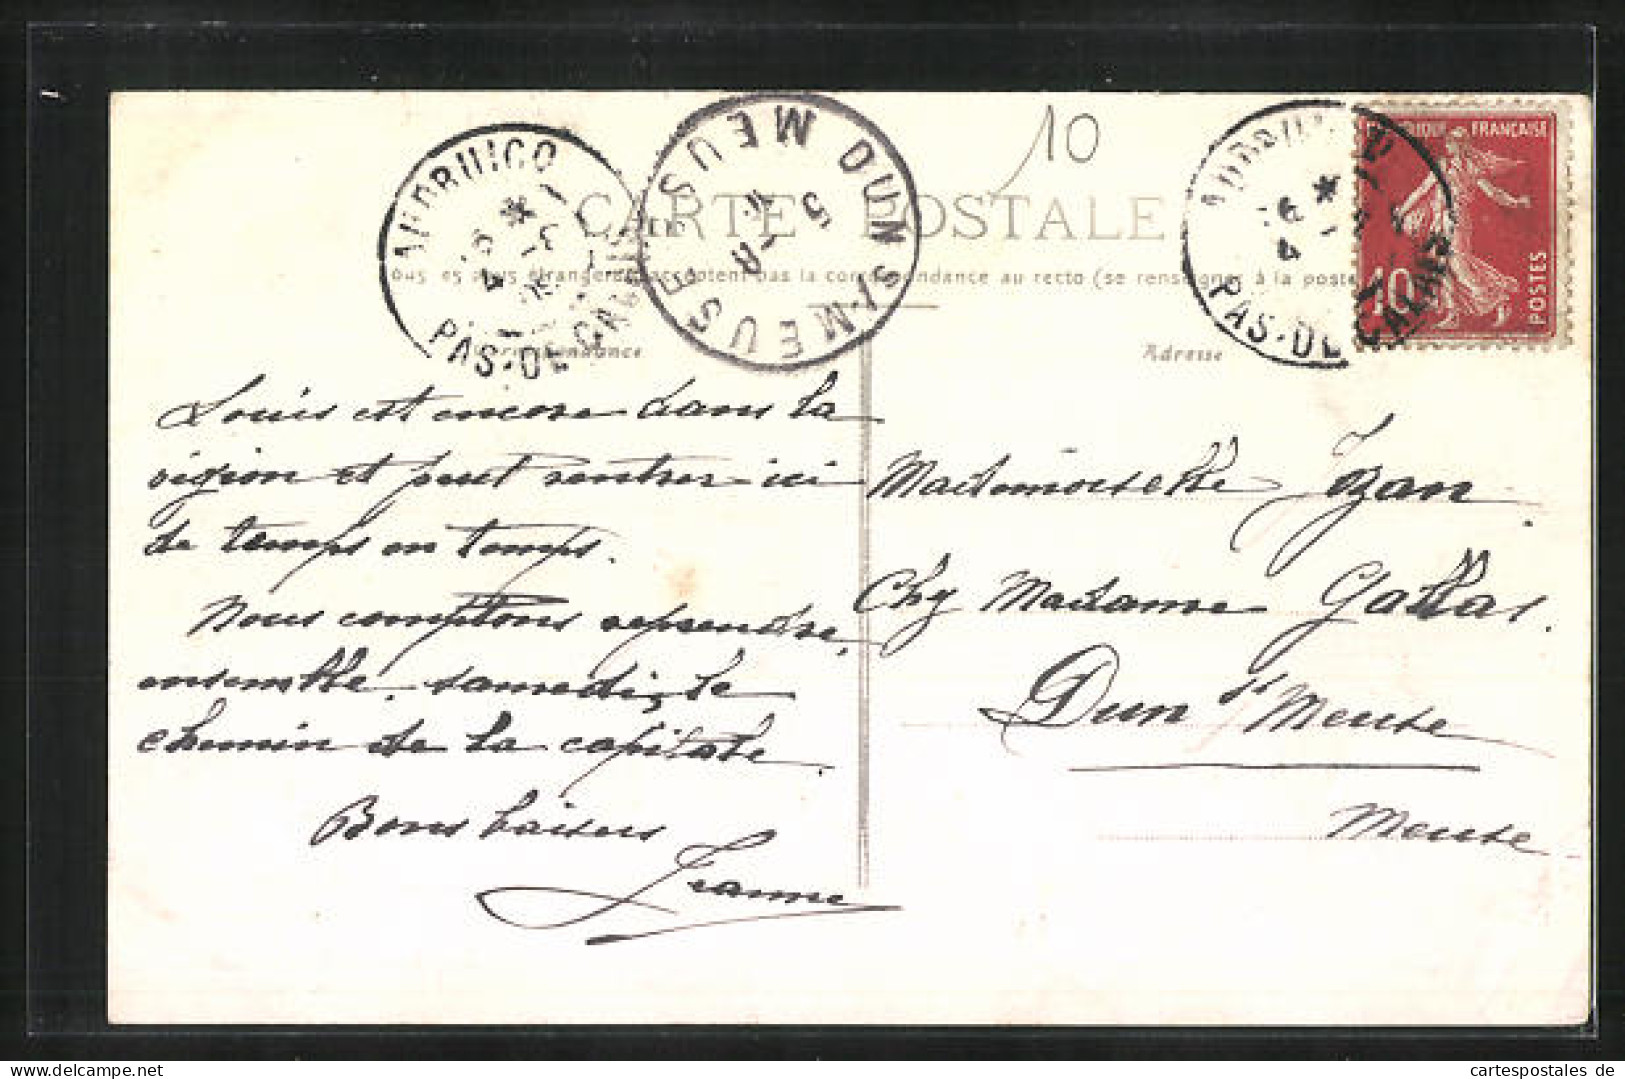 10
CARTE POSTALE
RÉPUBLIQUE FRANÇAISE
10
POSTES
AUDRUICQ
PAS-DE-CALAIS
DUN S/ MEUSE
MEUSE
AUDRUICQ
PAS-DE-CALAIS
Tous les pays étrangers n'acceptent pas la correspondance au recto (se renseigner à la poste
Correspondance
Adresse
Louis est encore dans la
région et peut rentrer ici
de temps en temps.
Nous comptons reprendre,
ensemble, samedi, le
chemin de la capitale.
Bons baisers
Jeanne
Mademoiselle Izan
Chz Madame Gallas.
Dun s/ Meuse
Meuse
cartespostales de